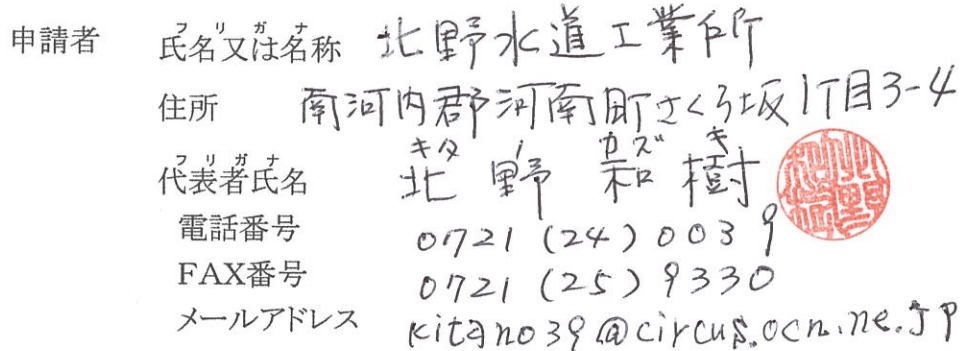 フリガナ
申請者 氏名又は名称 北野水道工業所
住所 南河内郡河南町さくら坂1丁目3-4
フリガナ キタ ノ カズ キ
代表者氏名 北野 和樹
電話番号 0721(24)0039
FAX番号 0721(25)9330
メールアドレス kitano39@circus.ocn.ne.jp